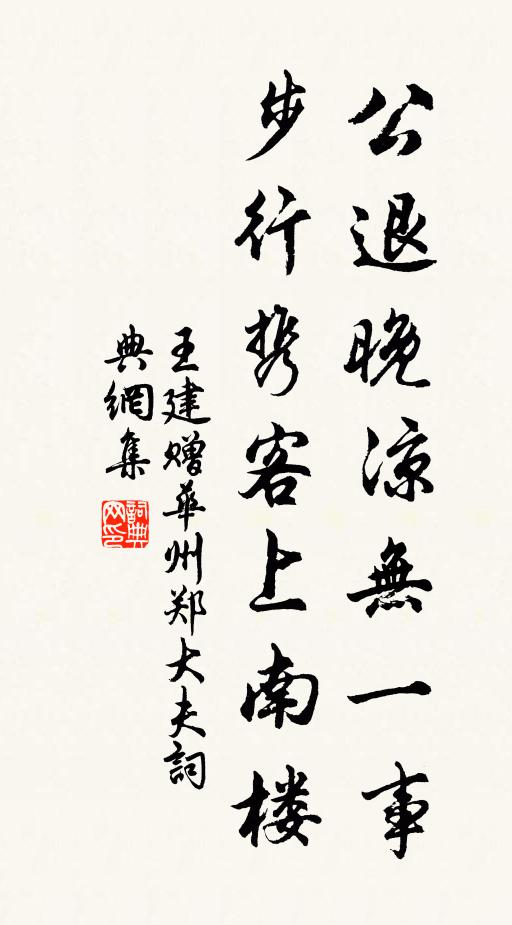 公退晚凉無一事
步行携客上南楼
王建赠華州郑大夫詞
典網集
詞典网印